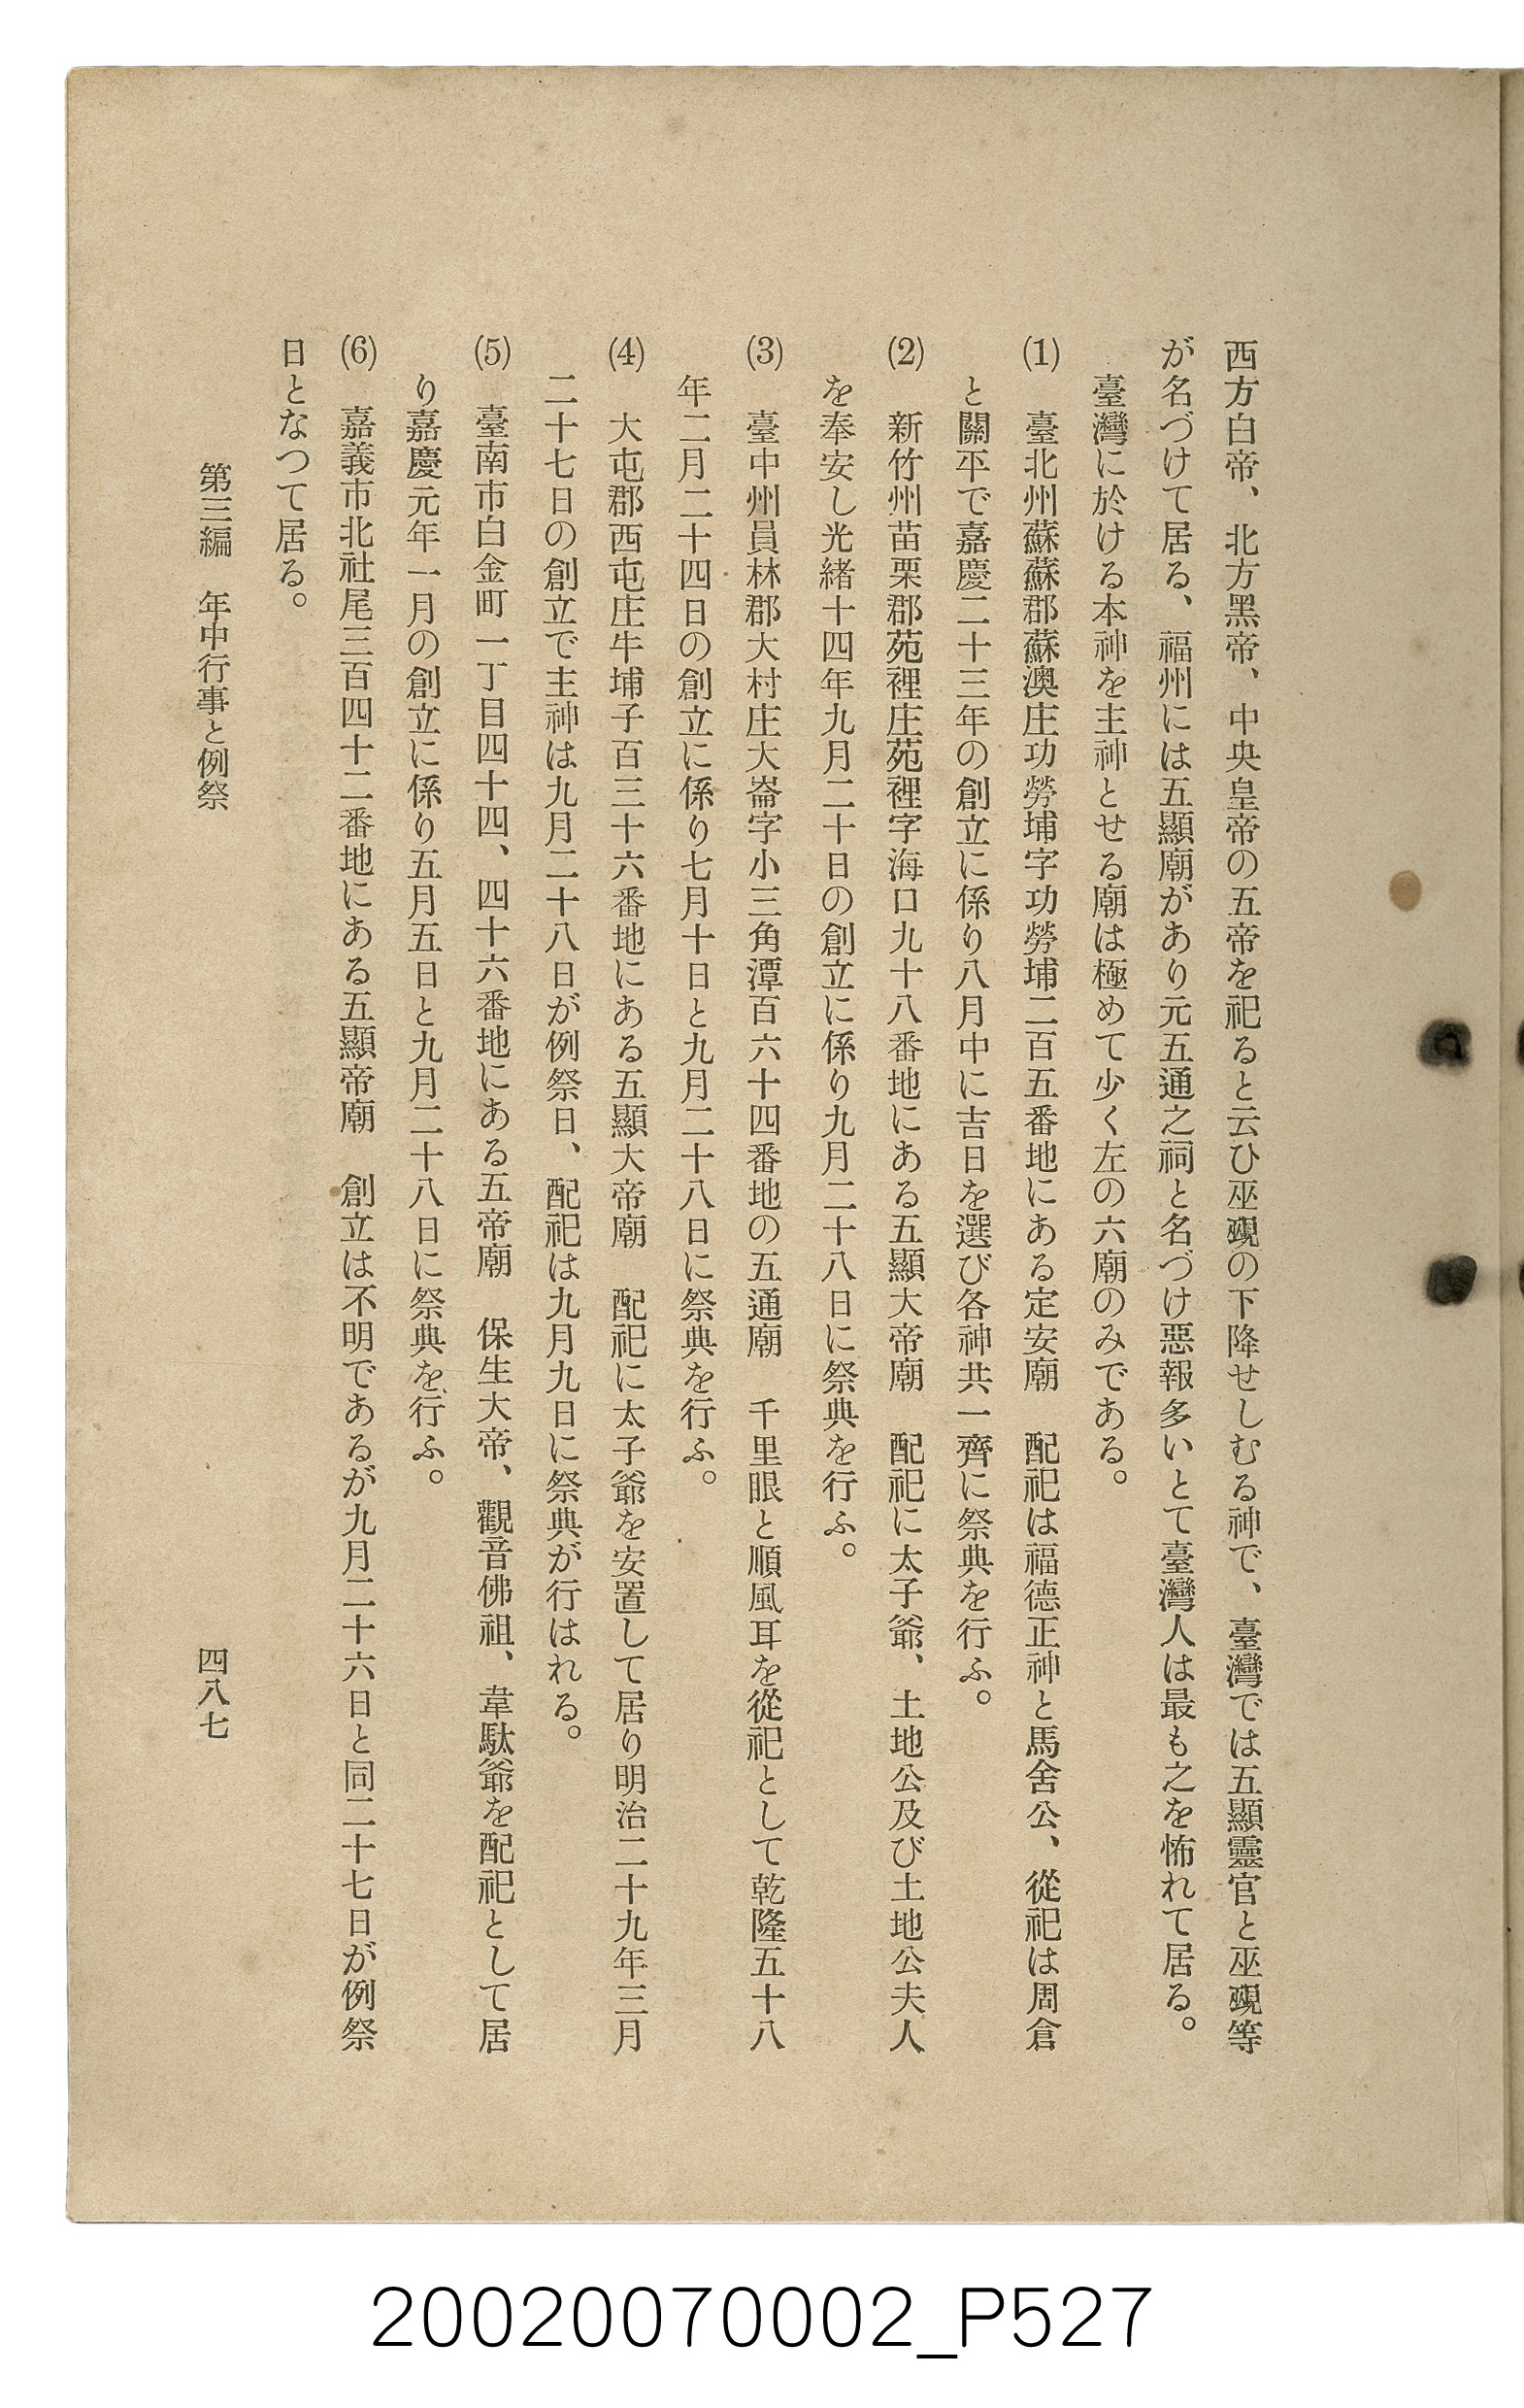 西方白帝、北方黑帝、中央皇帝の五帝を祀ると云ひ巫覡の下降せしむる神で、臺灣では五顯靈官と巫覡等
が名づけて居る、福州には五顯廟があり元五通之祠と名づけ惡報多いとて臺灣人は最も之を怖れて居る。
臺灣に於ける本神を主神とせる廟は極めて少く左の六廟のみである。
(1) 臺北州蘇蘇郡蘇澳庄功勞埔字功勞埔二百五番地にある定安廟　配祀は福德正神と馬舍公、從祀は周倉
と關平で嘉慶二十三年の創立に係り八月中に吉日を選び各神共一齊に祭典を行ふ。
(2) 新竹州苗栗郡苑裡庄苑裡字海口九十八番地にある五顯大帝廟　配祀に太子爺、土地公及び土地公夫人
を奉安し光緒十四年九月二十日の創立に係り九月二十八日に祭典を行ふ。
(3) 臺中州員林郡大村庄大崙字小三角潭百六十四番地の五通廟　千里眼と順風耳を從祀として乾隆五十八
年二月二十四日の創立に係り七月十日と九月二十八日に祭典を行ふ。
(4) 大屯郡西屯庄牛埔子百三十六番地にある五顯大帝廟　配祀に太子爺を安置して居り明治二十九年三月
二十七日の創立で主神は九月二十八日が例祭日、配祀は九月九日に祭典が行はれる。
(5) 臺南市白金町一丁目四十四、四十六番地にある五帝廟　保生大帝、觀音佛祖、韋駄爺を配祀として居
り嘉慶元年一月の創立に係り五月五日と九月二十八日に祭典を行ふ。
(6) 嘉義市北社尾三百四十二番地にある五顯帝廟　創立は不明であるが九月二十六日と同二十七日が例祭
日となつて居る。
第三編　年中行事と例祭
四八七
20020070002_P527